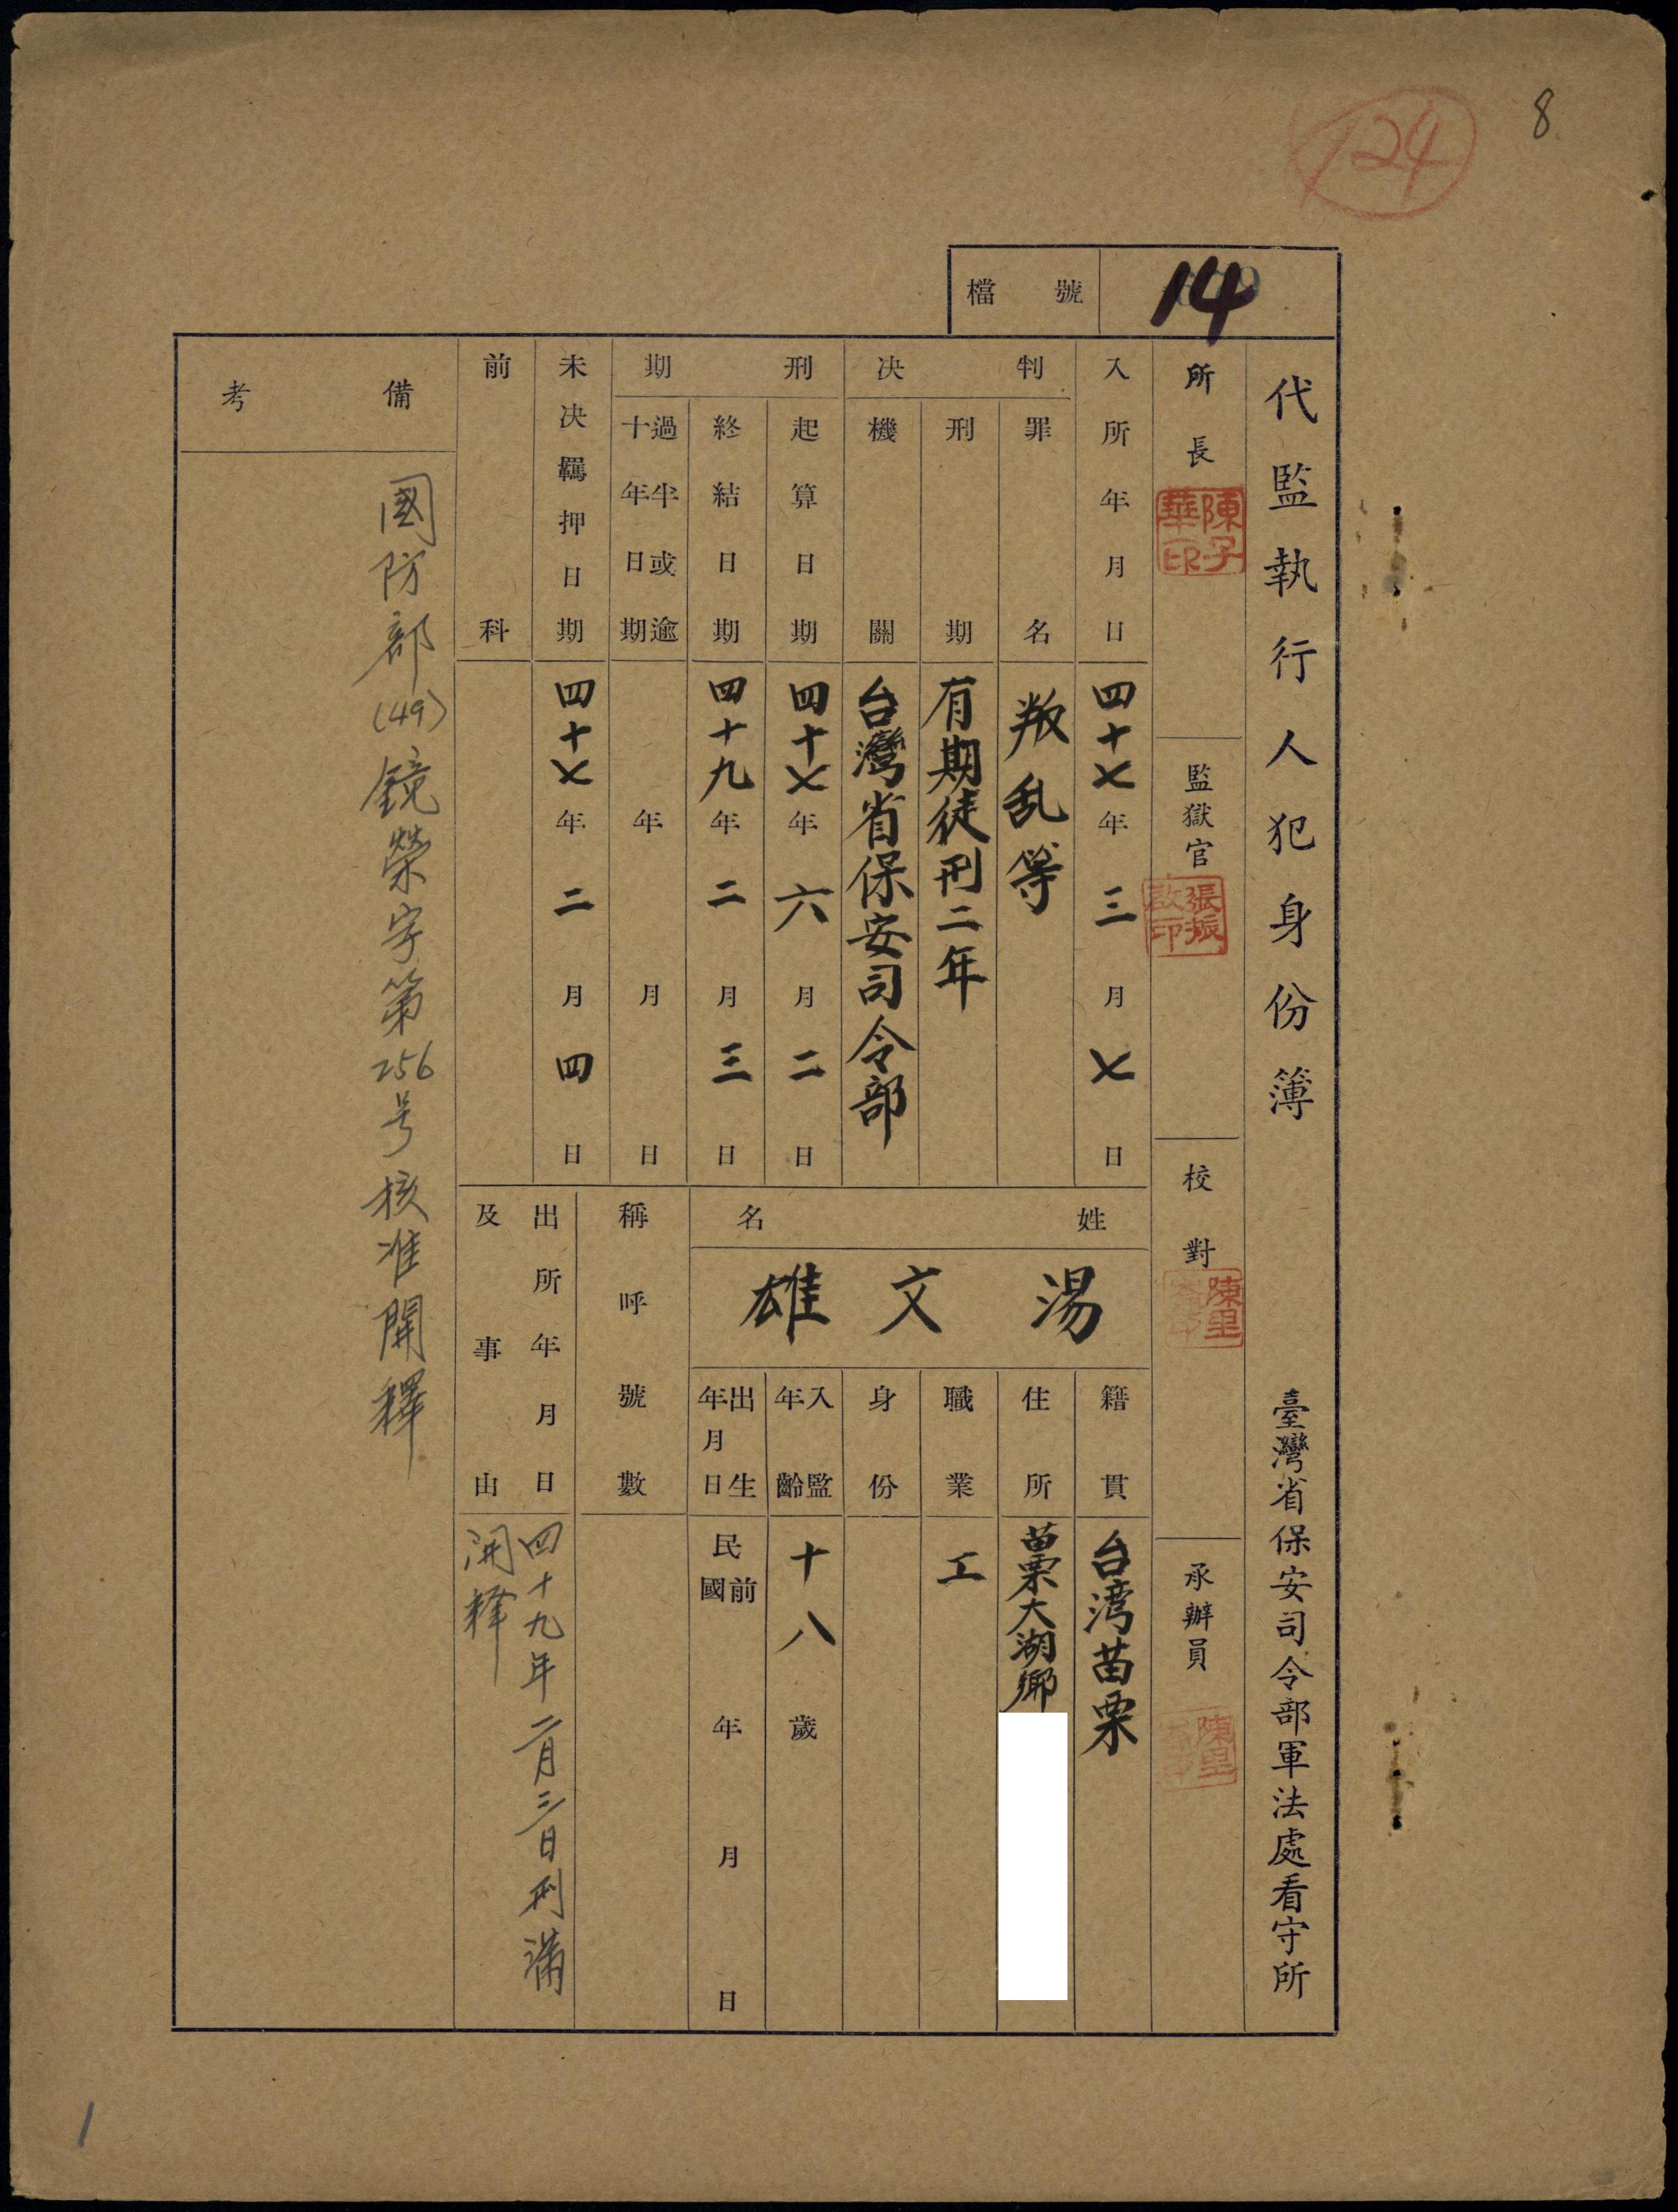 8
124
檔號 14
代監執行人犯身份簿 臺灣省保安司令部軍法處看守所
所長 陳子華印
監獄官 張振啟印
校對 陳里
承辦員
入所年月日 四十七年三月七日
判決
罪名 叛乱等
刑期 有期徒刑二年
機關 台灣省保安司令部
刑期
起算日期 四十七年六月二日
終結日期 四十九年二月三日
過半或逾十年日期 年 月 日
未決羈押日期 四十七年二月四日
前科
姓名
湯文雄
籍貫 台湾苗栗
住所 苗栗大湖鄉
職業 工
身份
入監年齡 十八歲
出生年月日 民國前 年 月 日
稱呼號數
出所年月日及事由 四十九年二月三日刑滿
開釋
備考
國防部(49)鏡榮字第256号核准開釋
1